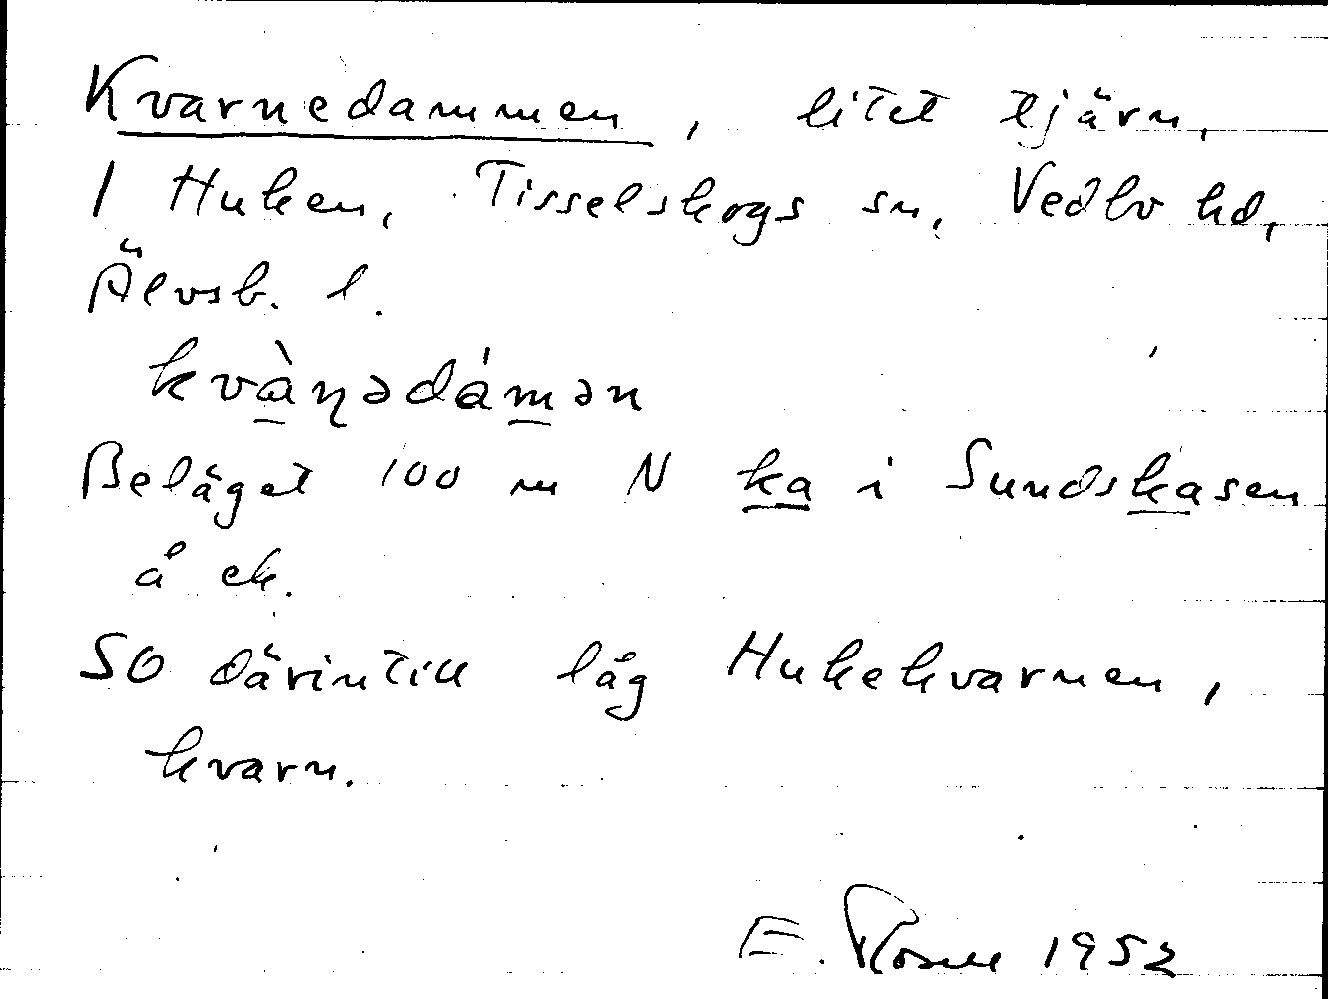 Kvarnedammen, litet tjärn,
1 Huken, Tisselskogs sn, Vedbo hd,
Älvsb. l.
kvàɳədámən
Beläget 100 m N ka i Sundskasen
å ek.
SO därintill låg Hukekvarnen,
kvarn.
E. 1952